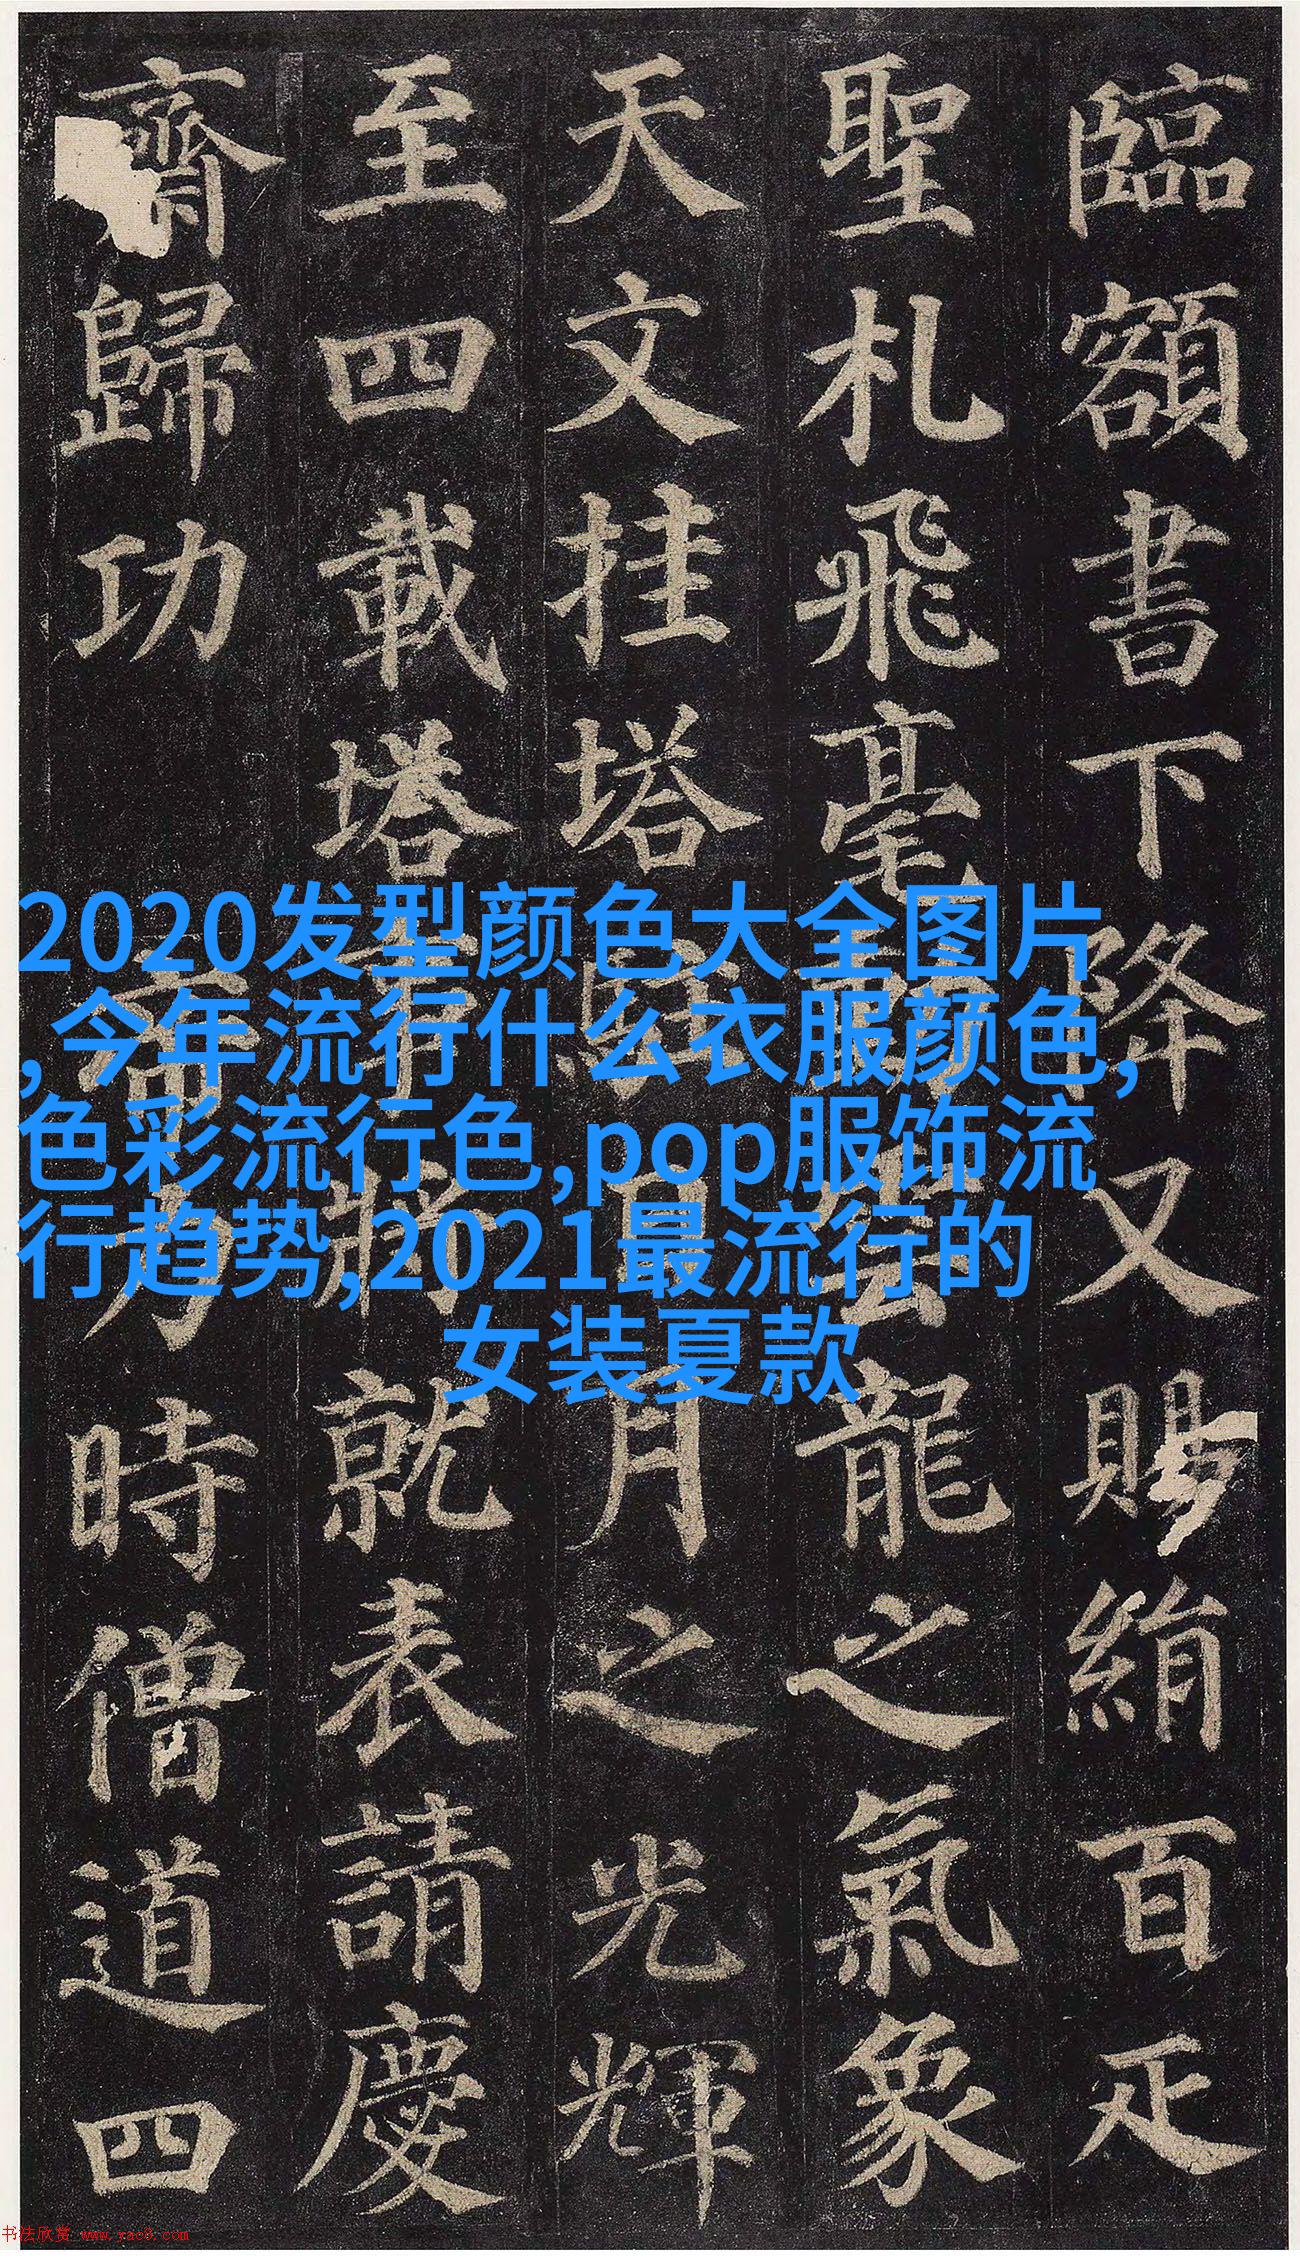 臨額書下降又賜絹百疋
聖札飛毫動雲龍之氣象
天文挂塔駐日月之光輝
至四載塔事將就表請慶
齋歸功帝力時僧道四
2020发型颜色大全图片
,今年流行什么衣服颜色,
色彩流行色,pop服饰流
行趋势,2021最流行的
女装夏款
书法欣赏 www.yac8.com